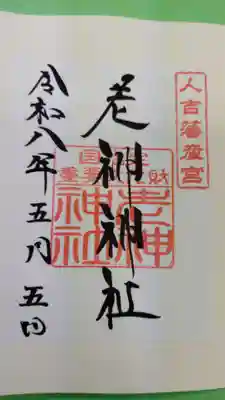 人吉藩産宮
老神神社
国指定
重要文化財
老神
神社
令和八年五月五日